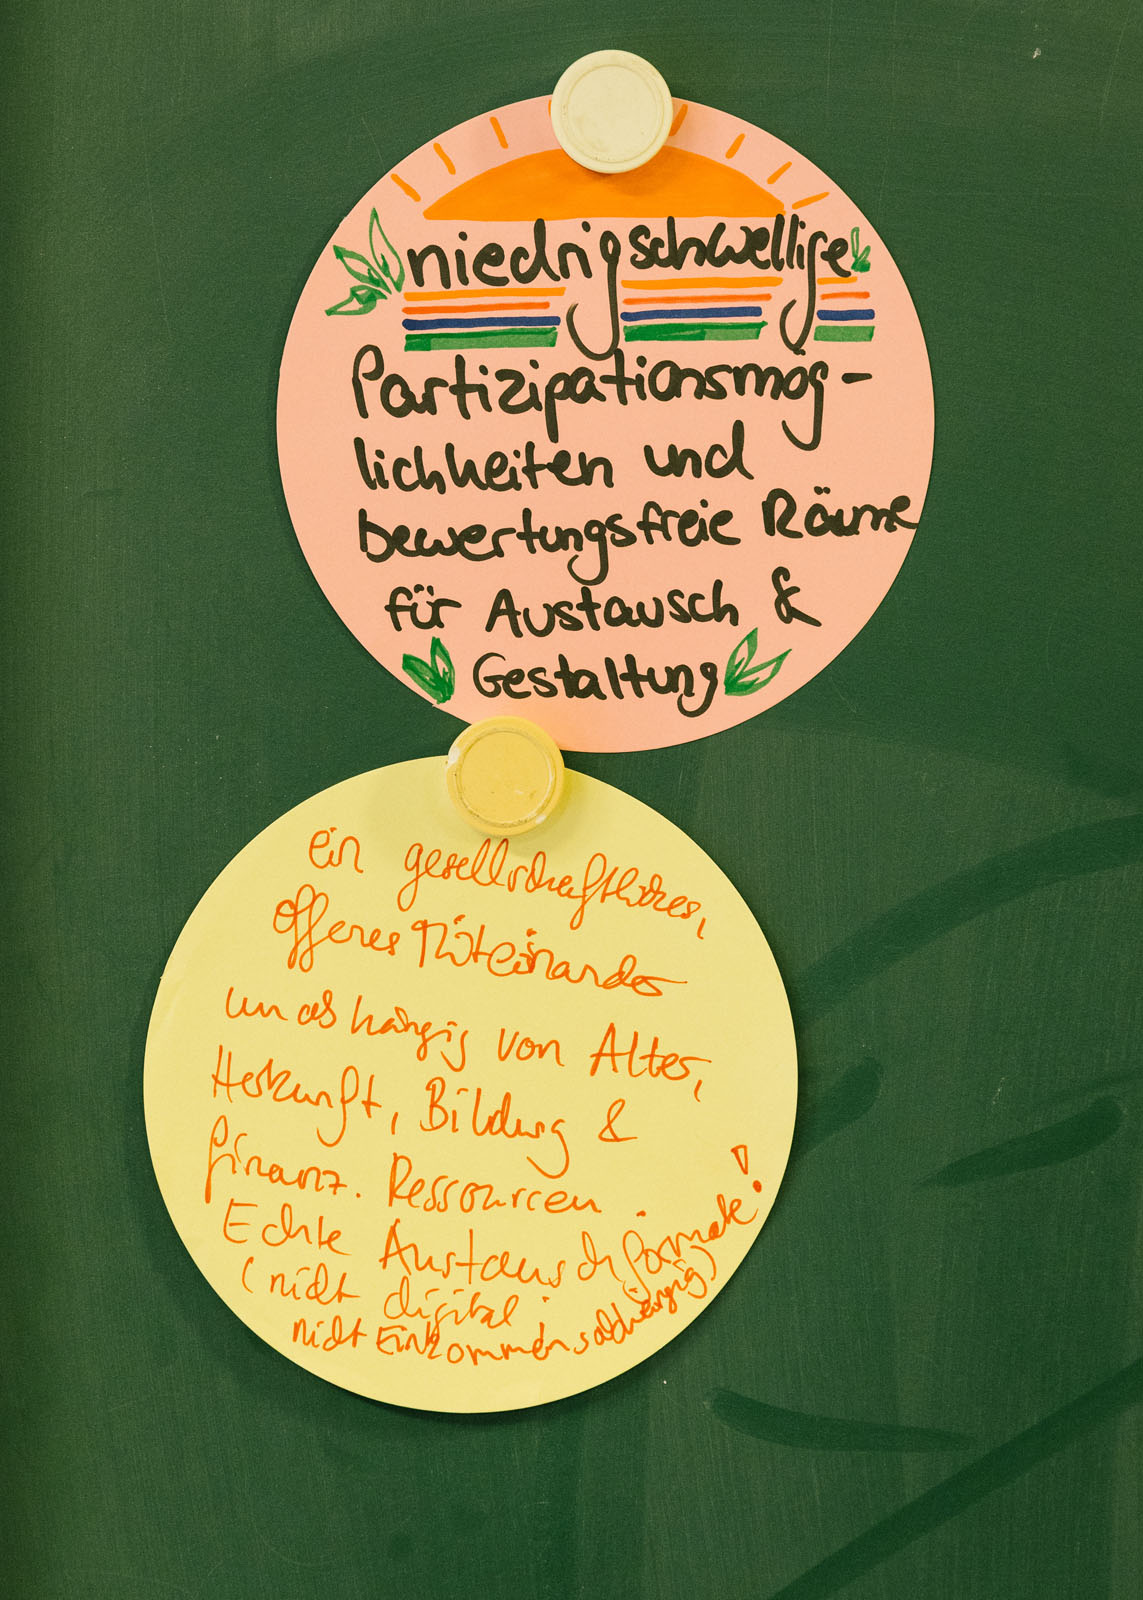 niedrigschwellige
Partizipationsmög-
lichkeiten und
bewertungsfreie Räume
für Austausch &
Gestaltung
Ein gesellschaftliches,
offenes Miteinander
unabhängig von Alter,
Herkunft, Bildung &
finanz. Ressourcen
Echte Austauschformate!
(nicht digital,
nicht einkommensabhängig)